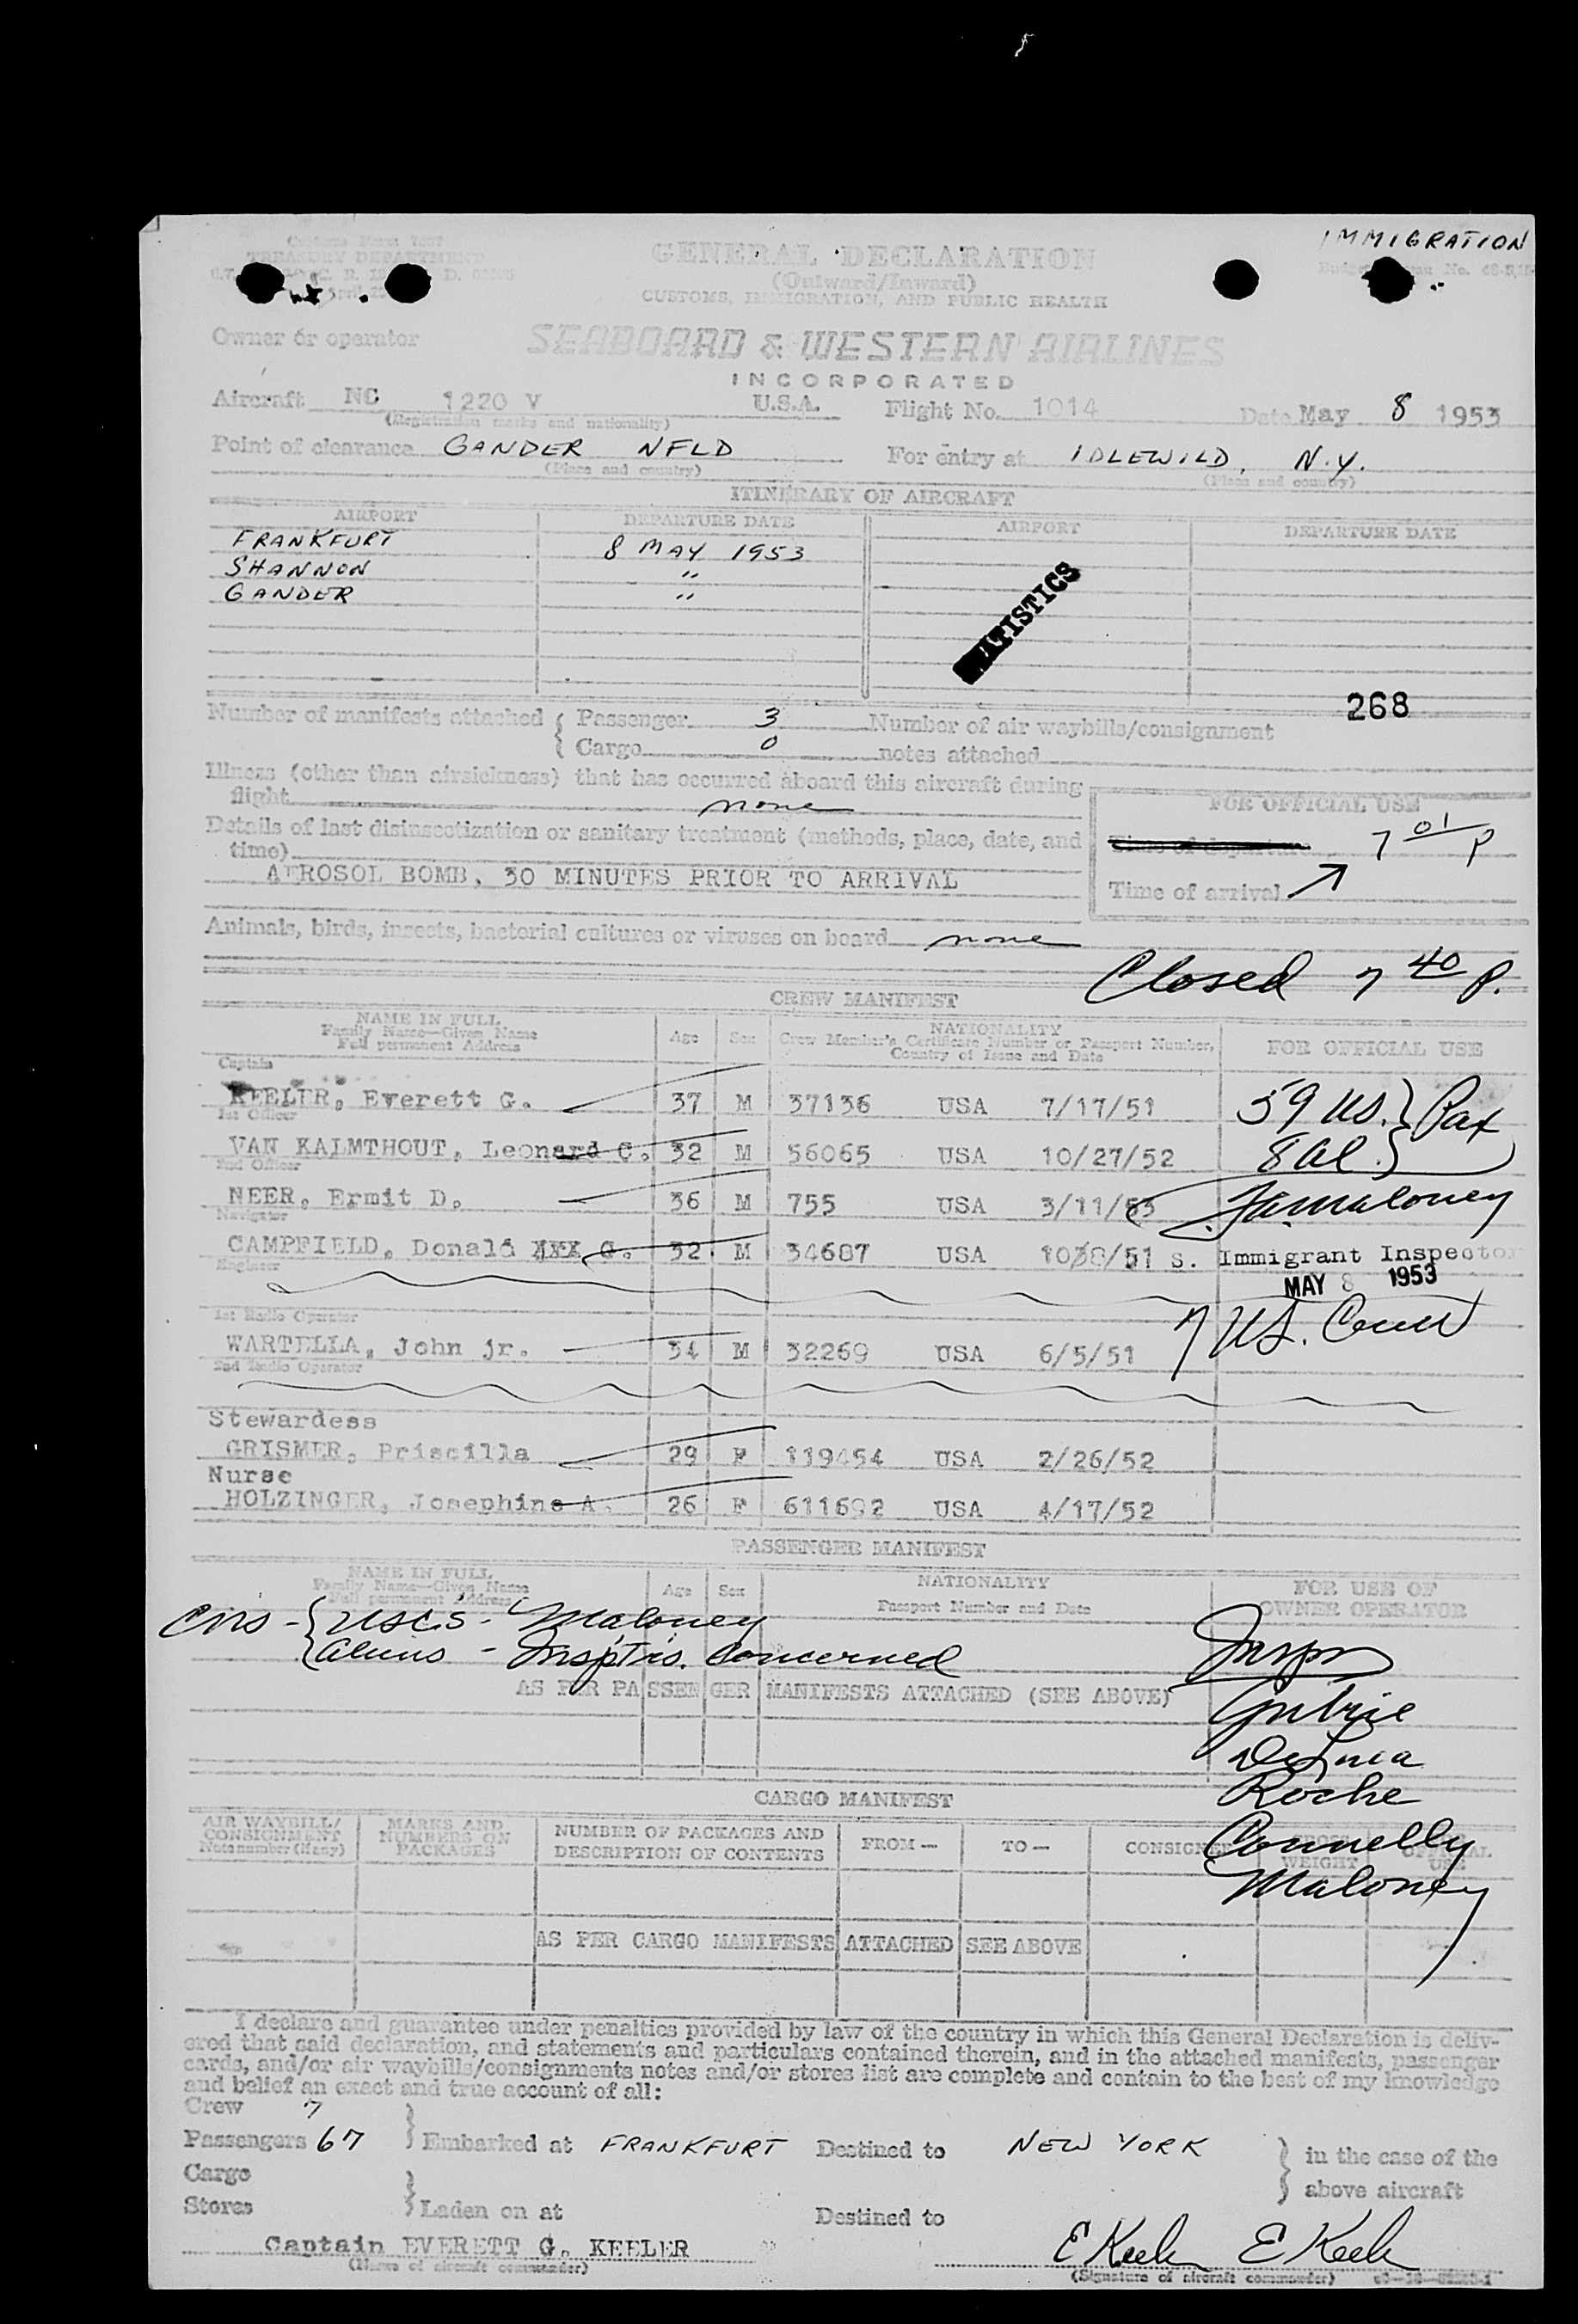 IMMIGRATION
Customs Form 7507
TREASURY DEPARTMENT
GENERAL DECLARATION
(Outward/Inward)
CUSTOMS, IMMIGRATION, AND PUBLIC HEALTH
Owner or operator SEABOARD & WESTERN AIRLINES
INCORPORATED
Aircraft NC 1220 V U.S.A. Flight No. 1014 Date May 8 1953
(Registration marks and nationality)
Point of clearance GANDER NFLD For entry at IDLEWILD, N.Y.
(Place and country) (Place and country)
ITINERARY OF AIRCRAFT
AIRPORT DEPARTURE DATE AIRPORT DEPARTURE DATE
FRANKFURT 8 MAY 1953
SHANNON "
GANDER "
ATISTICS
268
Number of manifests attached { Passenger 3 Number of air waybills/consignment
{ Cargo 0 notes attached
Illness (other than airsickness) that has occurred aboard this aircraft during
flight none
FOR OFFICIAL USE
Details of last disinsectization or sanitary treatment (methods, place, date, and
time)
7 01 P
AEROSOL BOMB, 30 MINUTES PRIOR TO ARRIVAL
Time of arrival
Animals, birds, insects, bacterial cultures or viruses on board none
Closed 7 40 P.
CREW MANIFEST
NAME IN FULL
Family Name—Given Name
Full permanent Address
Age Sex
NATIONALITY
Crew Member's Certificate Number or Passport Number,
Country of Issue and Date
FOR OFFICIAL USE
Captain
KEELER, Everett G. 37 M 37136 USA 7/17/51 59 US. } Pax
1st Officer
VAN KALMTHOUT, Leonard C. 32 M 56065 USA 10/27/52 8 al. }
2nd Officer
NEER, Ermit D. 36 M 755 USA 3/11/53 Maloney
Navigator
CAMPFIELD, Donald G. 32 M 34687 USA /51 S. Immigrant Inspector
Engineer
MAY 8 1953
1st Radio Operator
7 US. Crew
WARTELLA, John jr. 34 M 32269 USA 6/5/51
2nd Radio Operator
Stewardess
GRISMER, Priscilla 29 F 119454 USA 2/26/52
Nurse
HOLZINGER, Josephine A. 26 F 611692 USA 4/17/52
PASSENGER MANIFEST
NAME IN FULL
Family Name—Given Name
Full permanent Address
Age Sex
NATIONALITY
Passport Number and Date
FOR USE OF
OWNER OPERATOR
{ USCs - Maloney
{ Aliens - Insptrs. Concerned
Insprs
AS PER PASSENGER MANIFESTS ATTACHED (SEE ABOVE)
Roche
Connelly
Maloney
CARGO MANIFEST
AIR WAYBILL/
CONSIGNMENT
Note number (if any)
MARKS AND
NUMBERS ON
PACKAGES
NUMBER OF PACKAGES AND
DESCRIPTION OF CONTENTS
FROM— TO— CONSIGNEE
WEIGHT
OFFICIAL
USE
AS PER CARGO MANIFESTS ATTACHED SEE ABOVE
I declare and guarantee under penalties provided by law of the country in which this General Declaration is deliv-
ered that said declaration, and statements and particulars contained therein, and in the attached manifests, passenger
cards, and/or air waybills/consignments notes and/or stores list are complete and contain to the best of my knowledge
and belief an exact and true account of all:
Crew 7
Passengers 67 } Embarked at FRANKFURT Destined to NEW YORK } in the case of the
Cargo above aircraft
Stores } Laden on at Destined to
Captain EVERETT G. KEELER E Keeler E Keeler
(Name of aircraft commander) (Signature of aircraft commander)